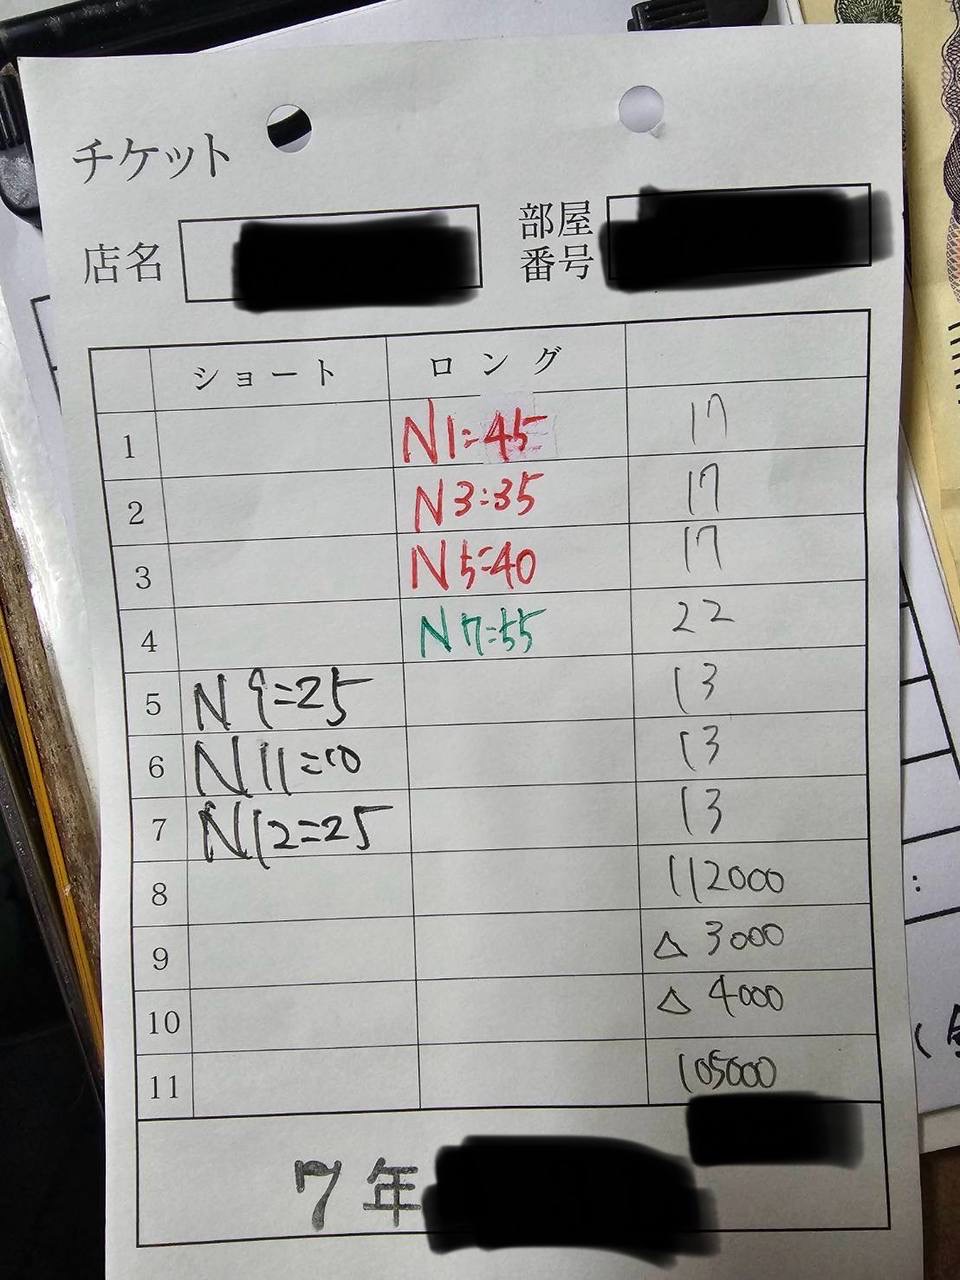 チケット
店名
部屋番号
ショート ロング
1 N1=45 17
2 N3:35 17
3 N5=40 17
4 N7=55 22
5 N9=25 13
6 N11=10 13
7 N12=25 13
8 112000
9 △3000
10 △4000
11 105000
7年